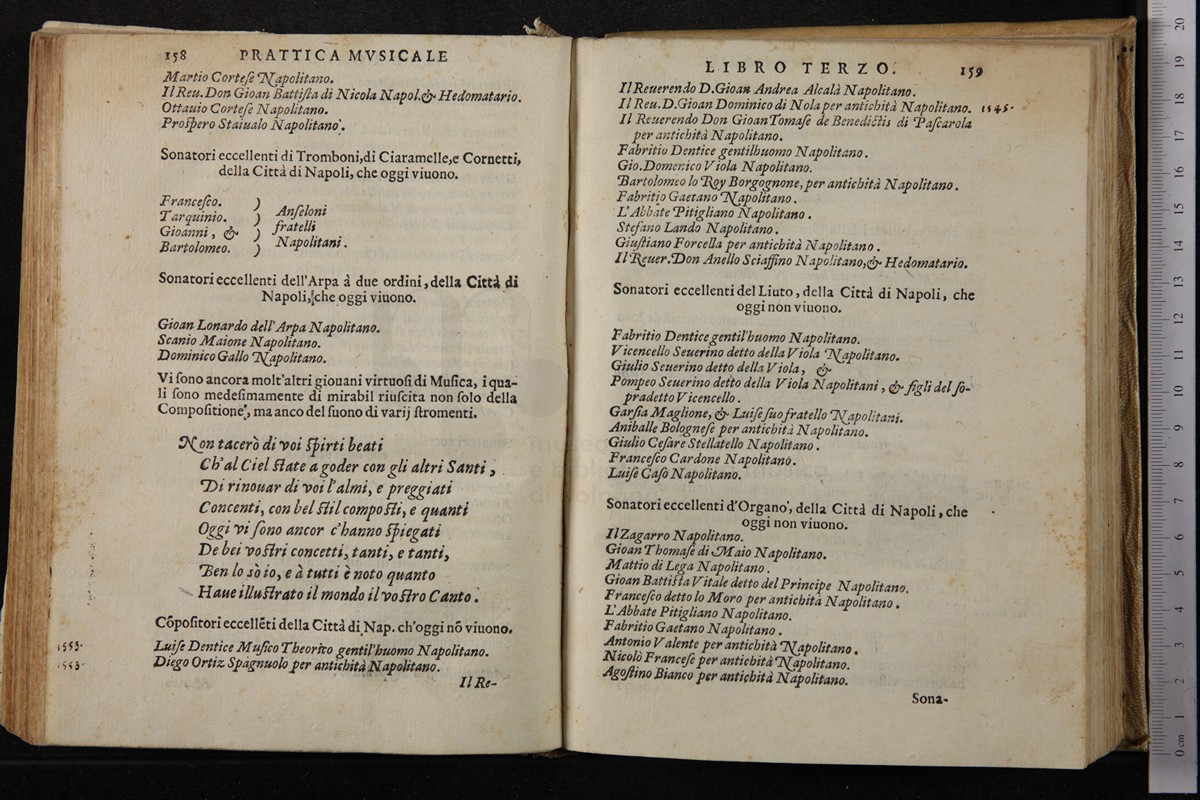 158 PRATTICA MVSICALE
Martio Corteſe Napolitano.
Il Reu. Don Gioan Battiſta di Nicola Napol. & Hedomatario.
Ottauio Corteſe Napolitano.
Proſpero Staiualo Napolitano.
Sonatori eccellenti di Tromboni, di Ciaramelle, e Cornetti,
della Città di Napoli, che oggi viuono.
Franceſco. )
Tarquinio. ) Anſeloni
Gioanni, & ) fratelli
Bartolomeo. ) Napolitani.
Sonatori eccellenti dell'Arpa à due ordini, della Città di
Napoli, che oggi viuono.
Gioan Lonardo dell'Arpa Napolitano.
Scanio Maione Napolitano.
Dominico Gallo Napolitano.
Vi ſono ancora molt'altri giouani virtuoſi di Muſica, i qua-
li ſono medeſimamente di mirabil riuſcita non ſolo della
Compoſitione, ma anco del ſuono di varij ſtromenti.
Non tacerò di voi ſpirti beati
Ch'al Ciel ſtate a goder con gli altri Santi,
Di rinouar di voi l'almi, e preggiati
Concenti, con bel ſtil compoſti, e quanti
Oggi vi ſono ancor c'hanno ſpiegati
De bei voſtri concetti, tanti, e tanti,
Ben lo sò io, e à tutti è noto quanto
Haue illuſtrato il mondo il voſtro Canto.
Cõpoſitori eccellẽti della Città di Nap. ch'oggi nõ viuono.
1553. Luiſe Dentice Muſico Theorico gentil'huomo Napolitano.
1553. Diego Ortiz Spagnuolo per antichità Napolitano.
Il Re-
LIBRO TERZO. 159
Il Reuerendo D. Gioan Andrea Alcalà Napolitano.
Il Reu. D. Gioan Dominico di Nola per antichità Napolitano. 1545.
Il Reuerendo Don Gioan Tomaſe de Benedictis di Paſcarola
per antichità Napolitano.
Fabritio Dentice gentilhuomo Napolitano.
Gio. Domenico Viola Napolitano.
Bartolomeo lo Roy Borgognone, per antichità Napolitano.
Fabritio Gaetano Napolitano.
L'Abbate Pitigliano Napolitano.
Stefano Lando Napolitano.
Giuſtiano Forcella per antichità Napolitano.
Il Reuer. Don Anello Sciaffino Napolitano, & Hedomatario.
Sonatori eccellenti del Liuto, della Città di Napoli, che
oggi non viuono.
Fabritio Dentice gentil'huomo Napolitano.
Vicencello Seuerino detto della Viola Napolitano.
Giulio Seuerino detto della Viola, &
Pompeo Seuerino detto della Viola Napolitani, & figli del ſo-
pradetto Vicencello.
Garſia Maglione, & Luiſe ſuo fratello Napolitani.
Aniballe Bologneſe per antichità Napolitano.
Giulio Ceſare Stellatello Napolitano.
Franceſco Cardone Napolitano.
Luiſe Caſò Napolitano.
Sonatori eccellenti d'Organo, della Città di Napoli, che
oggi non viuono.
Il Zagarro Napolitano.
Gioan Thomaſe di Maio Napolitano.
Mattio di Lega Napolitano.
Gioan Battiſta Vitale detto del Principe Napolitano.
Franceſco detto lo Moro per antichità Napolitano.
L'Abbate Pitigliano Napolitano.
Fabritio Gaetano Napolitano.
Antonio Valente per antichità Napolitano.
Nicolò Franceſe per antichità Napolitano.
Agoſtino Bianco per antichità Napolitano.
Sona-
0 cm 1 2 3 4 5 6 7 8 9 10 11 12 13 14 15 16 17 18 19 20